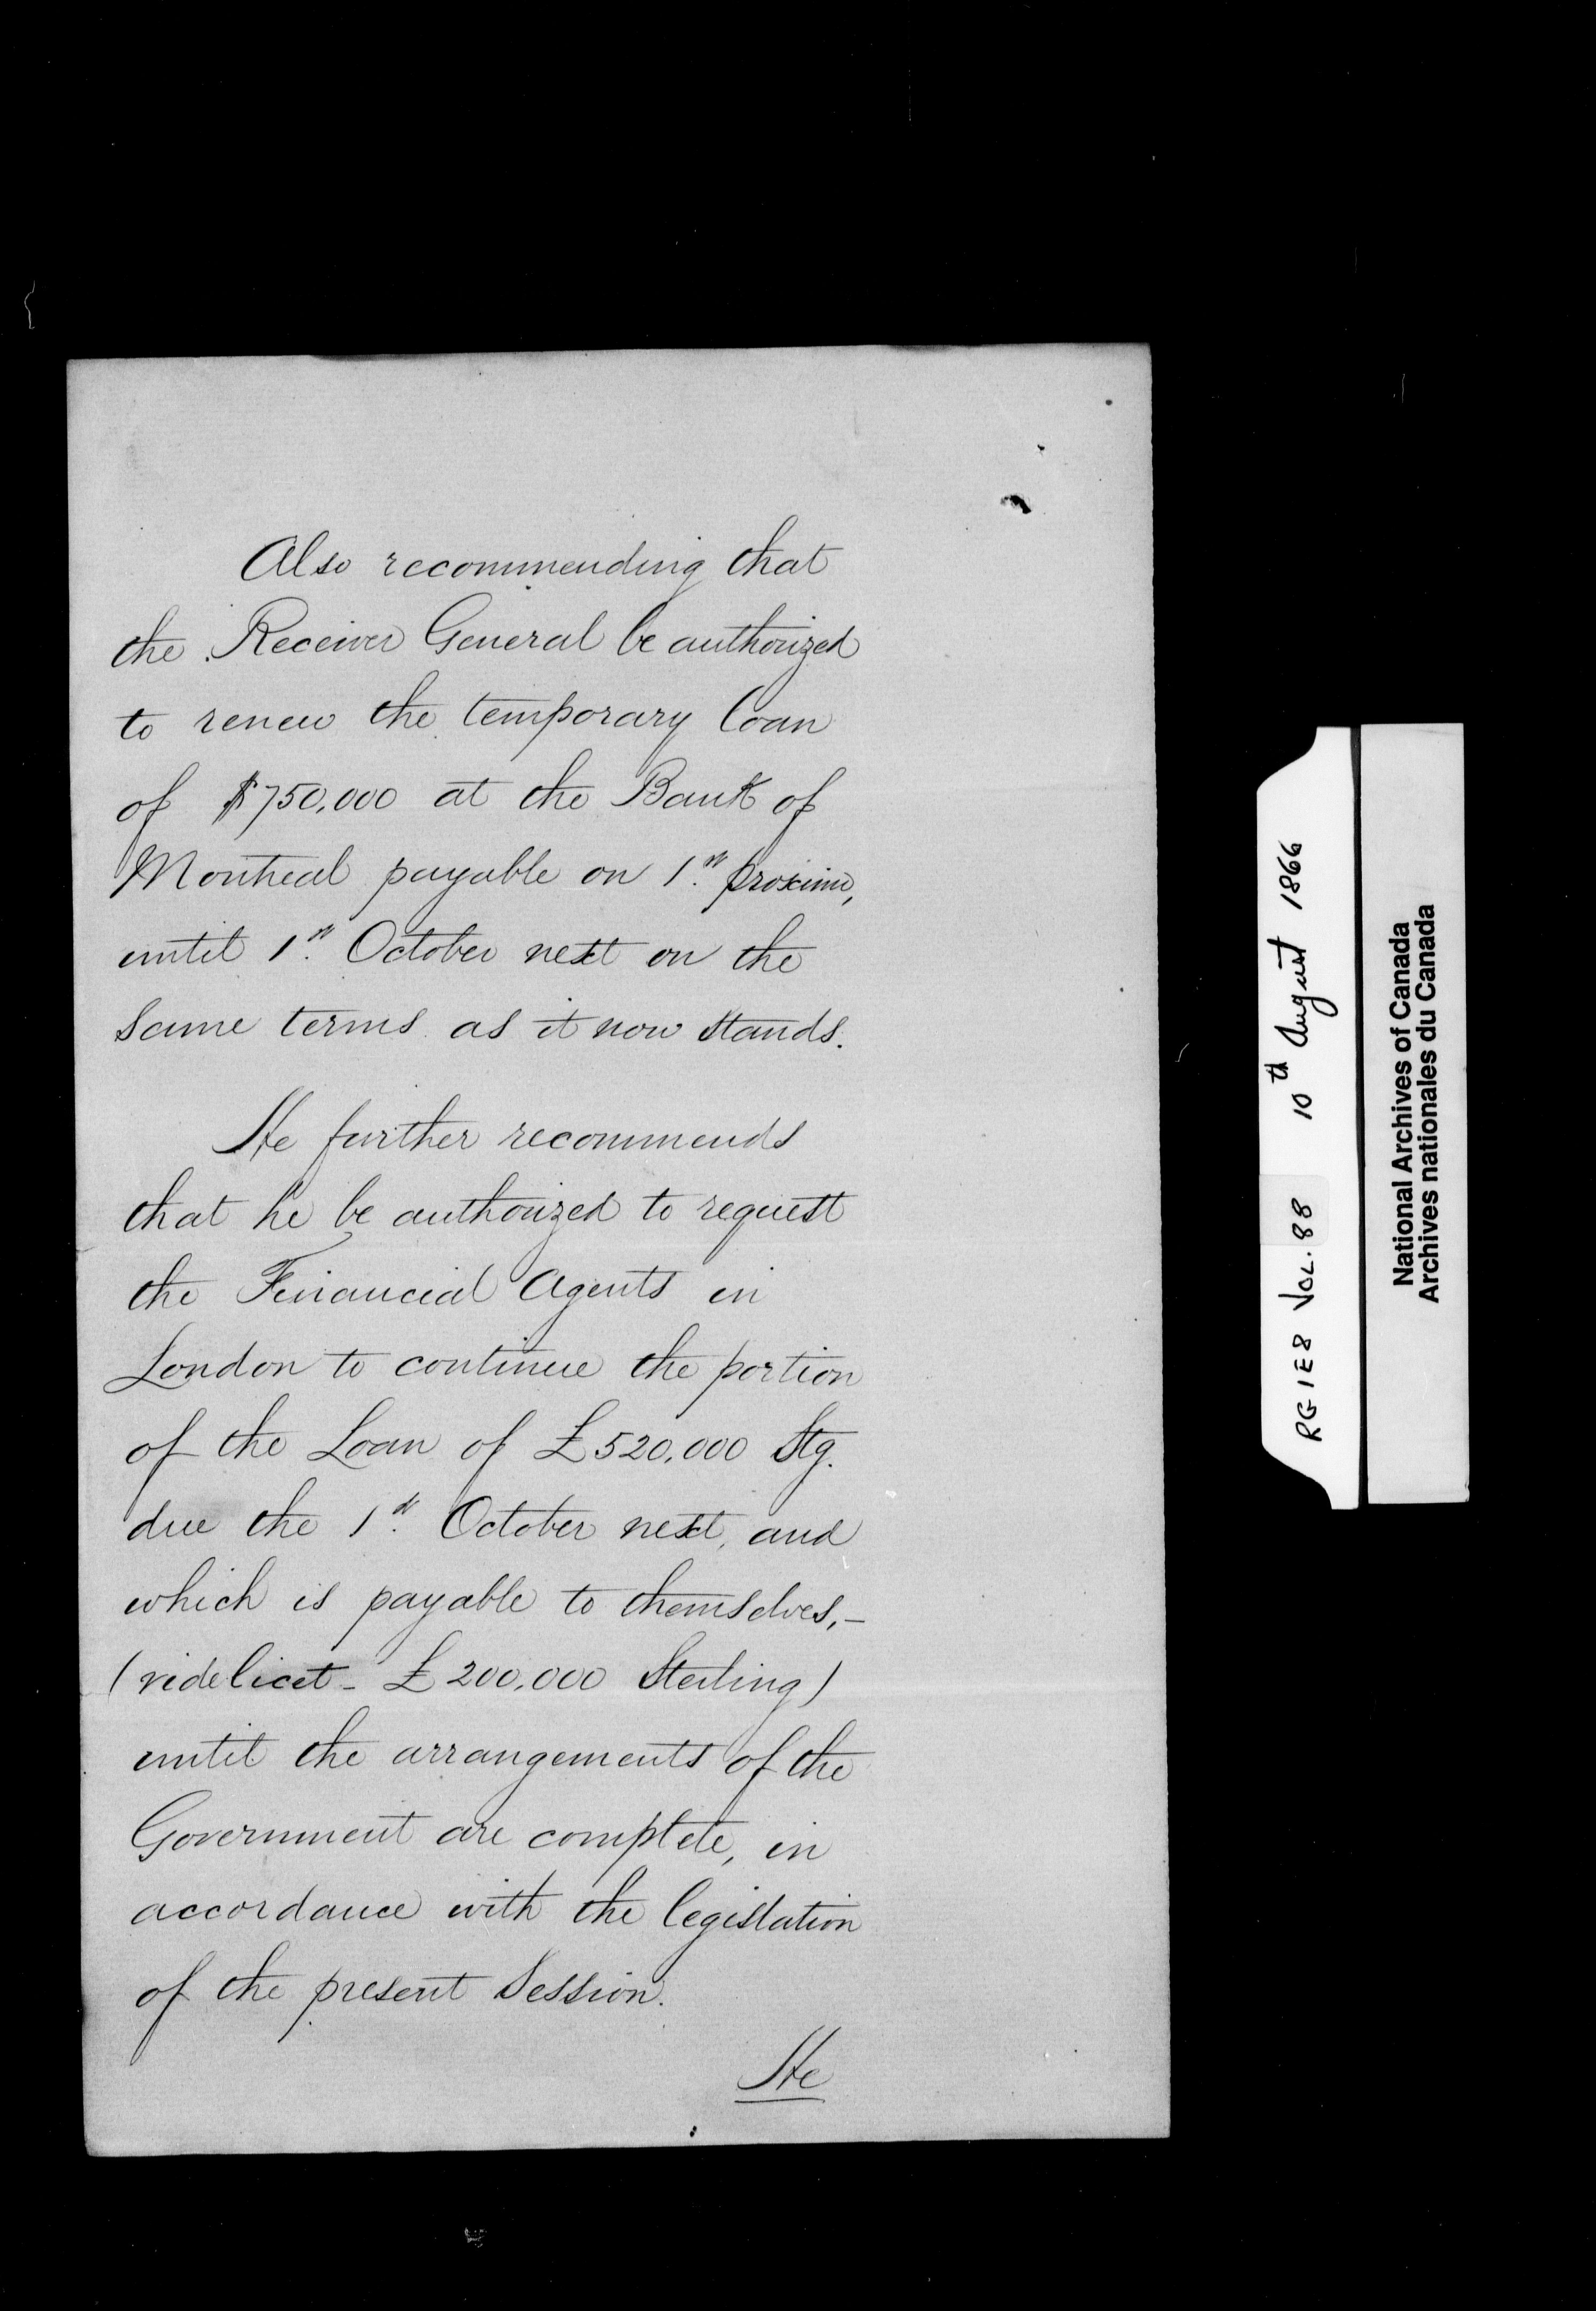 Also recommending that
the Receiver General be authorized
to renew the temporary loan
of $750,000 at the Bank of
Montreal payable on 1st proximo,
until 1st October next on the
same terms as it now stands.
He further recommends
that he be authorized to request
the Financial Agents in
London to continue the portion
of the Loan of £520,000 Stg.
due the 1st October next, and
which is payable to themselves,-
(videlicet - £200,000 Sterling)
until the arrangements of the
Government are complete, in
accordance with the legislation
of the present Session.
He
RG 1 E8 VOL. 88 10th August 1866
National Archives of Canada
Archives nationales du Canada